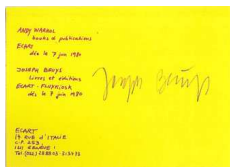 ANDY WARHOL
books & publications
ECART
dès le 7 juin 1980
JOSEPH BEUYS
livres et éditions
ECART - FLUXKIOSK
dès le 7 juin 1980
Joseph Beuys
ECART
14 RUE D'ITALIE
C.P. 253
1211 GENEVE 3